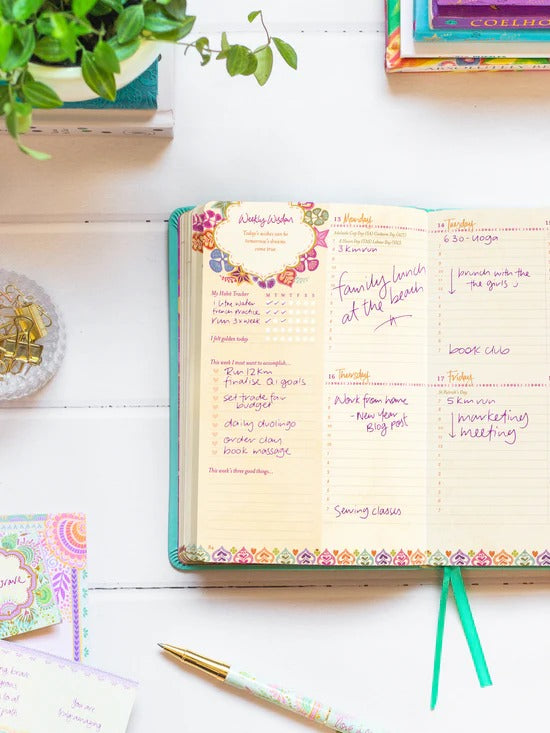 COELHO
Weekly Wisdom
Today's wishes can be
tomorrow's dreams
come true
My Habit Tracker
M T W T F S S
1 litre water
french practice
run 3x week
I felt golden today
This week I most want to accomplish...
Run 12km
finalise Q1 goals
set trade fair
budget
daily duolingo
order clay
book massage
This week's three good things...
13 Monday
3km run
family lunch
at the beach
14 Tuesday
630-yoga
brunch with the
the girls
book club
16 Thursday
Work from home
- New Year
Blog post
Sewing classes
17 Friday
St Patrick's Day
5km run
marketing
meeting
you are